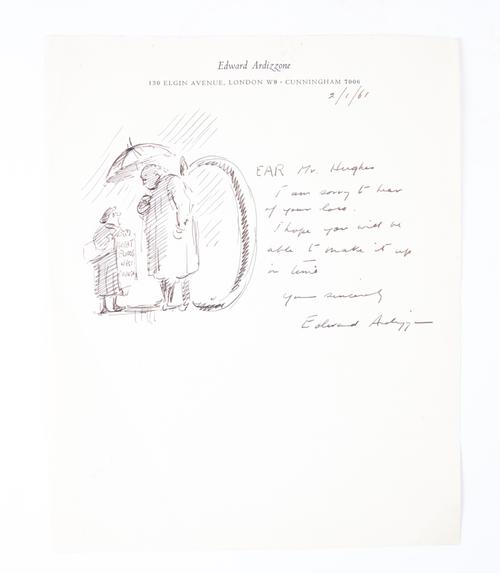 Edward Ardizzone
130 ELGIN AVENUE, LONDON W9 · CUNNINGHAM 7006
2/1/61
DEAR Mr. Hughes
I am sorry to hear
of your loss.
I hope you will be
able to make it up
in time
Yours sincerely
Edward Ardizzone